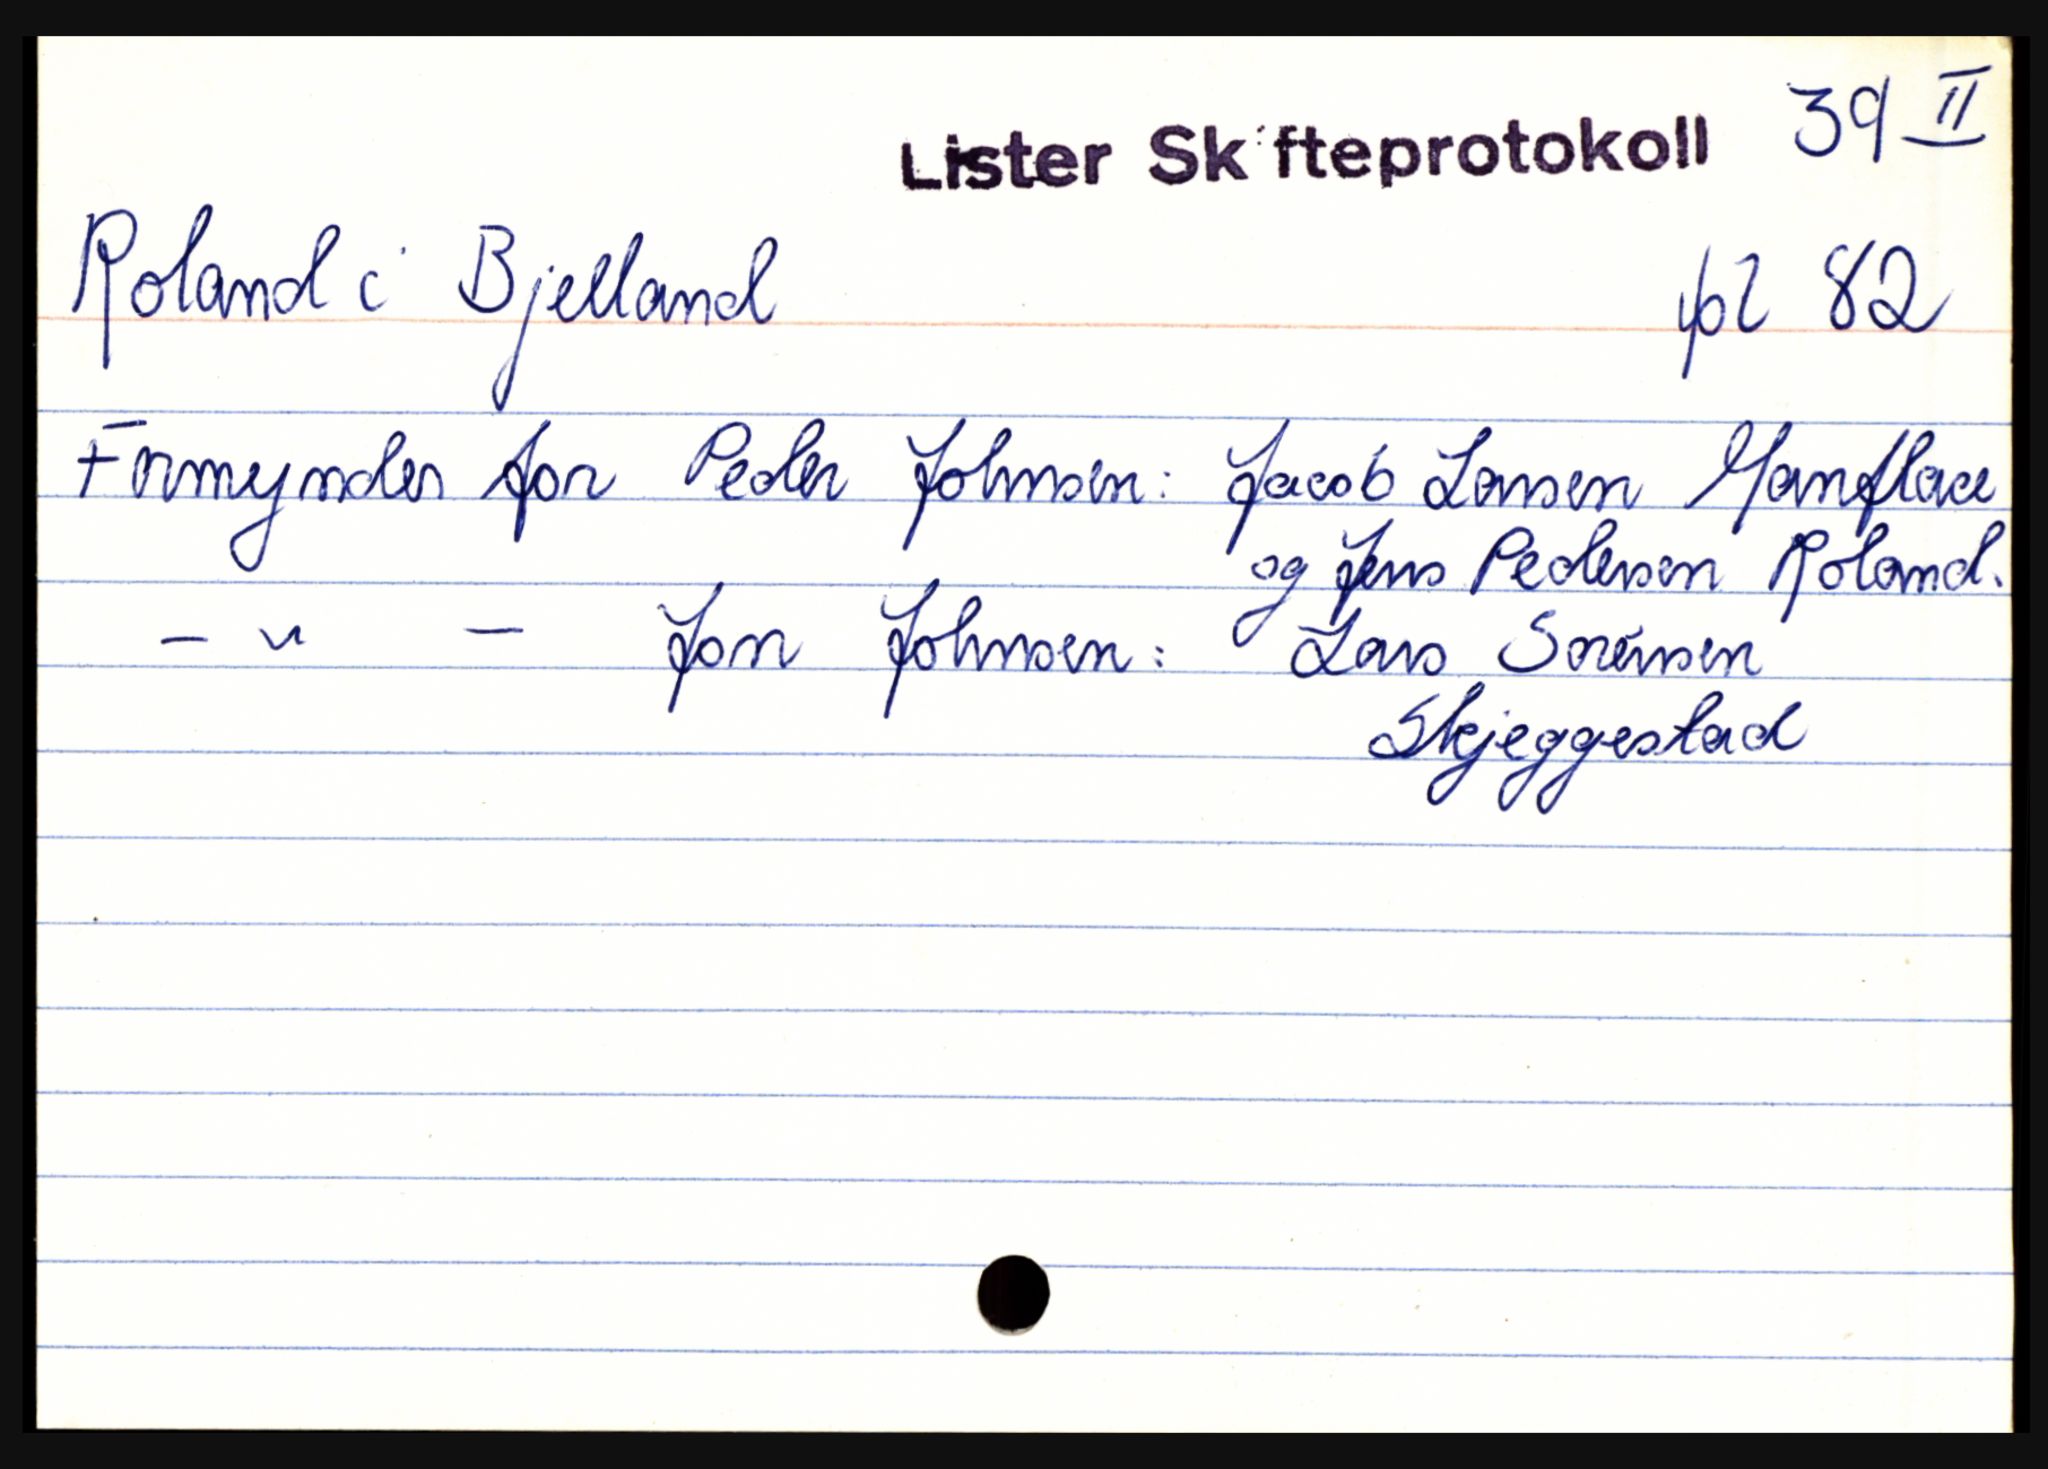 Lister Skifteprotokoll 39 II
Roland i Bjelland pl 82
Formynder for Peder Johnsen: Jacob Larsen
og Jens Pedersen Roland.
— " — Jon Johnsen: Lars Sørensen
Skjeggestad